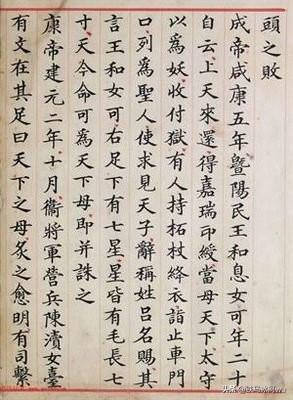 頭之敗
成帝咸康五年暨陽民王和息女可年二十
自云上天來還得嘉瑞印綬當母天下太守
以為妖收付獄有人持柘杖絳衣詣止車門
口列為聖人使求見天子辭稱姓呂名賜其
言王和女可右足下有七星星皆有毛長七
寸天今命可為天下母即并誅之
康帝建元二年十月衞將軍營兵陳瀆女臺
有文在其足曰天下之母炙之愈明有司繫